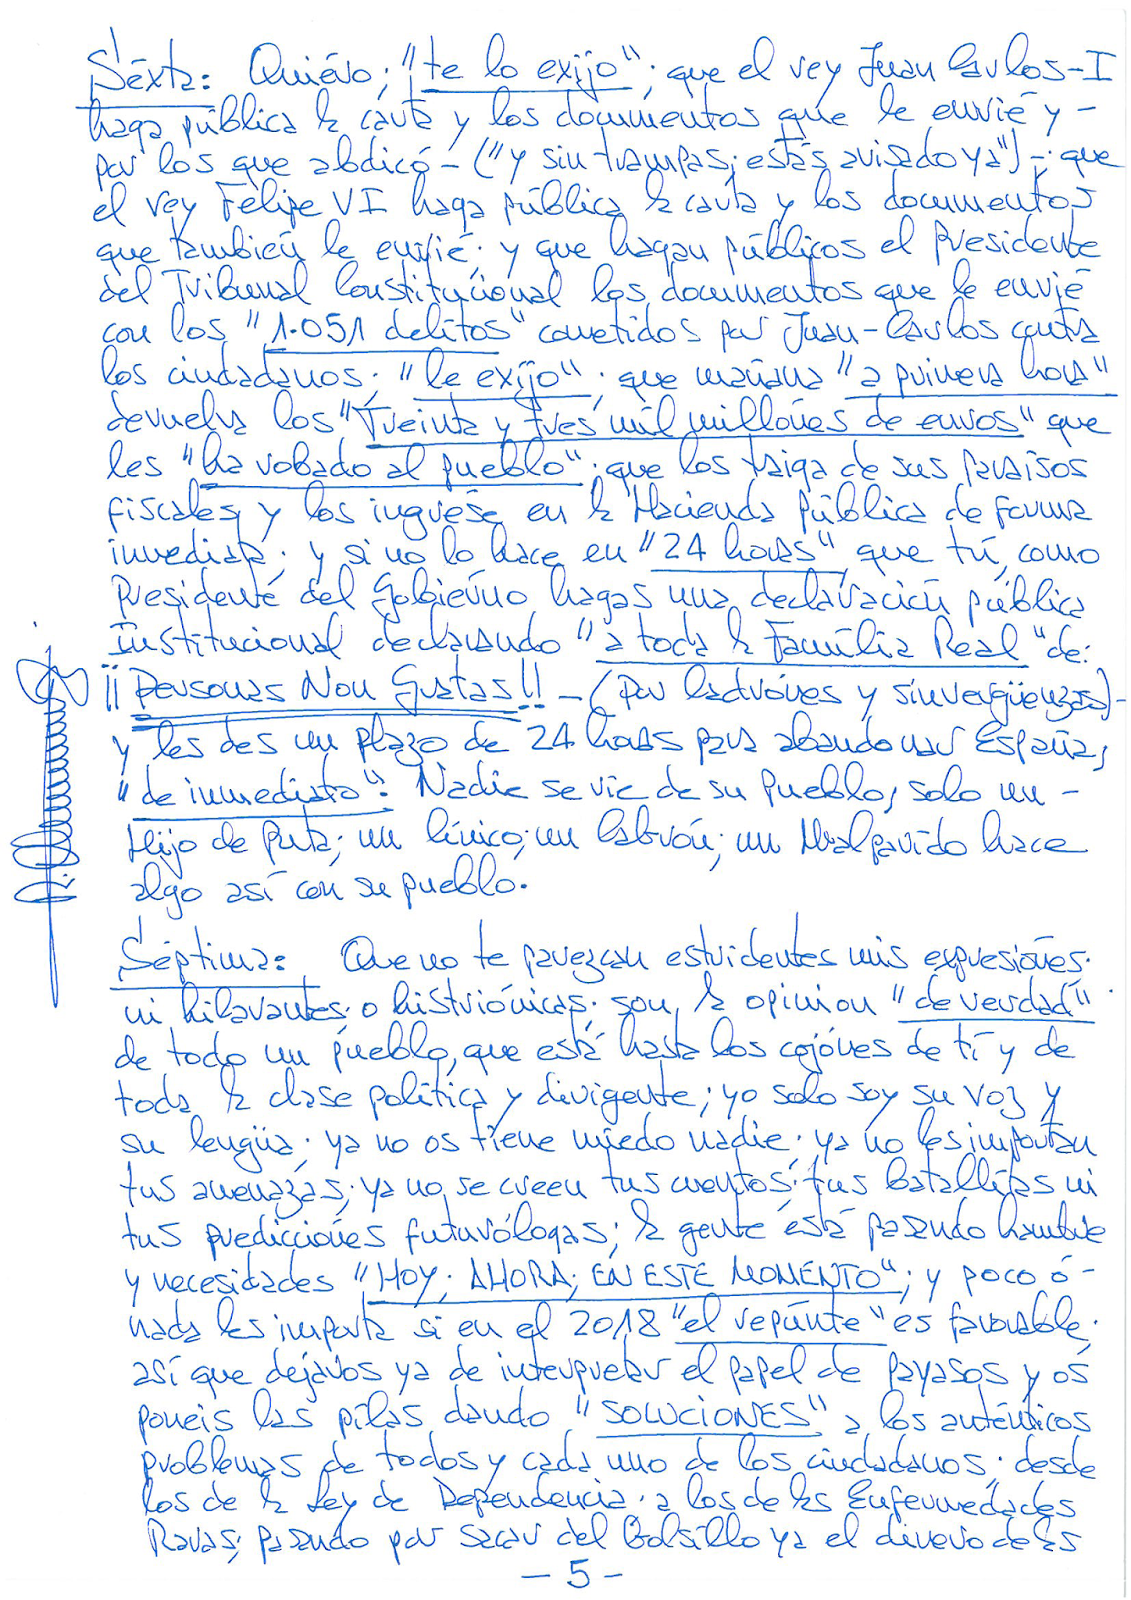 Séxta: Quiéro; "te lo exijo"; que el rey Juan Carlos-I
haga pública la carta y los documéntos que le envié y -
por los que abdicó - ("y sin trampas; estás avisado ya") -; que
el rey Felipe VI haga pública la carta y los documentos
que también le envié; y que hagan públicos el Presidente
del Tribunal Constituciónal los documentos que le envié
con los "1.051 delitos" cometidos por Juan-Carlos contra
los ciudadanos; "le exíjo"; que mañana "a primera hora"
devuelva los "Treinta y trés mil millónes de euros" que
les "ha robado al pueblo"; que los traiga de sus paraísos
fiscales, y los ingrése en la Hacienda Pública de forma
inmediata; y si no lo hace en "24 horas" que tú, como
Presidenté del Gobiérno hagas una declaración pública
Institucional declarando "a toda la Família Real" de:
¡¡Personas Non Gratas!! - (por ladrónes y sinvergüenzas) -
y les des un plazo de 24 horas para abandonar España,
"de inmediato". Nadie se ríe de su Pueblo, solo un -
Hijo de Puta; un Cínico; un Cabrón; un Malparido hace
algo así con su pueblo.
Séptima: Que no te parezcan estridentes mis expresiónes;
ni hilarantes; o histriónicas; son, la opinion "de verdad"
de todo un pueblo, que está hasta los cojónes de tí y de
toda la clase política y dirigente; yo solo soy su voz y
su lengüa; ya no os tiene miedo nadie; ya no les importan
tus amenazas; ya no se creen tus cuentos; tus batallítas ni
tus predicciónes futurólogas; la gente está pasando hambre
y necesidades "HOY; AHORA; EN ESTE MOMENTO"; y poco ó -
nada les importa si en el 2018 "el repúnte" es favorable;
así que dejáros ya de interpretar el papel de payasos y os
poneis las pílas dando "SOLUCIONES" a los auténticos
problemas de todos y cada uno de los ciudadanos; desde
los de la Ley de Dependencia; a los de las Enfermedades
Raras; pasando por sacar del Bolsillo ya el dinero de las
- 5 -